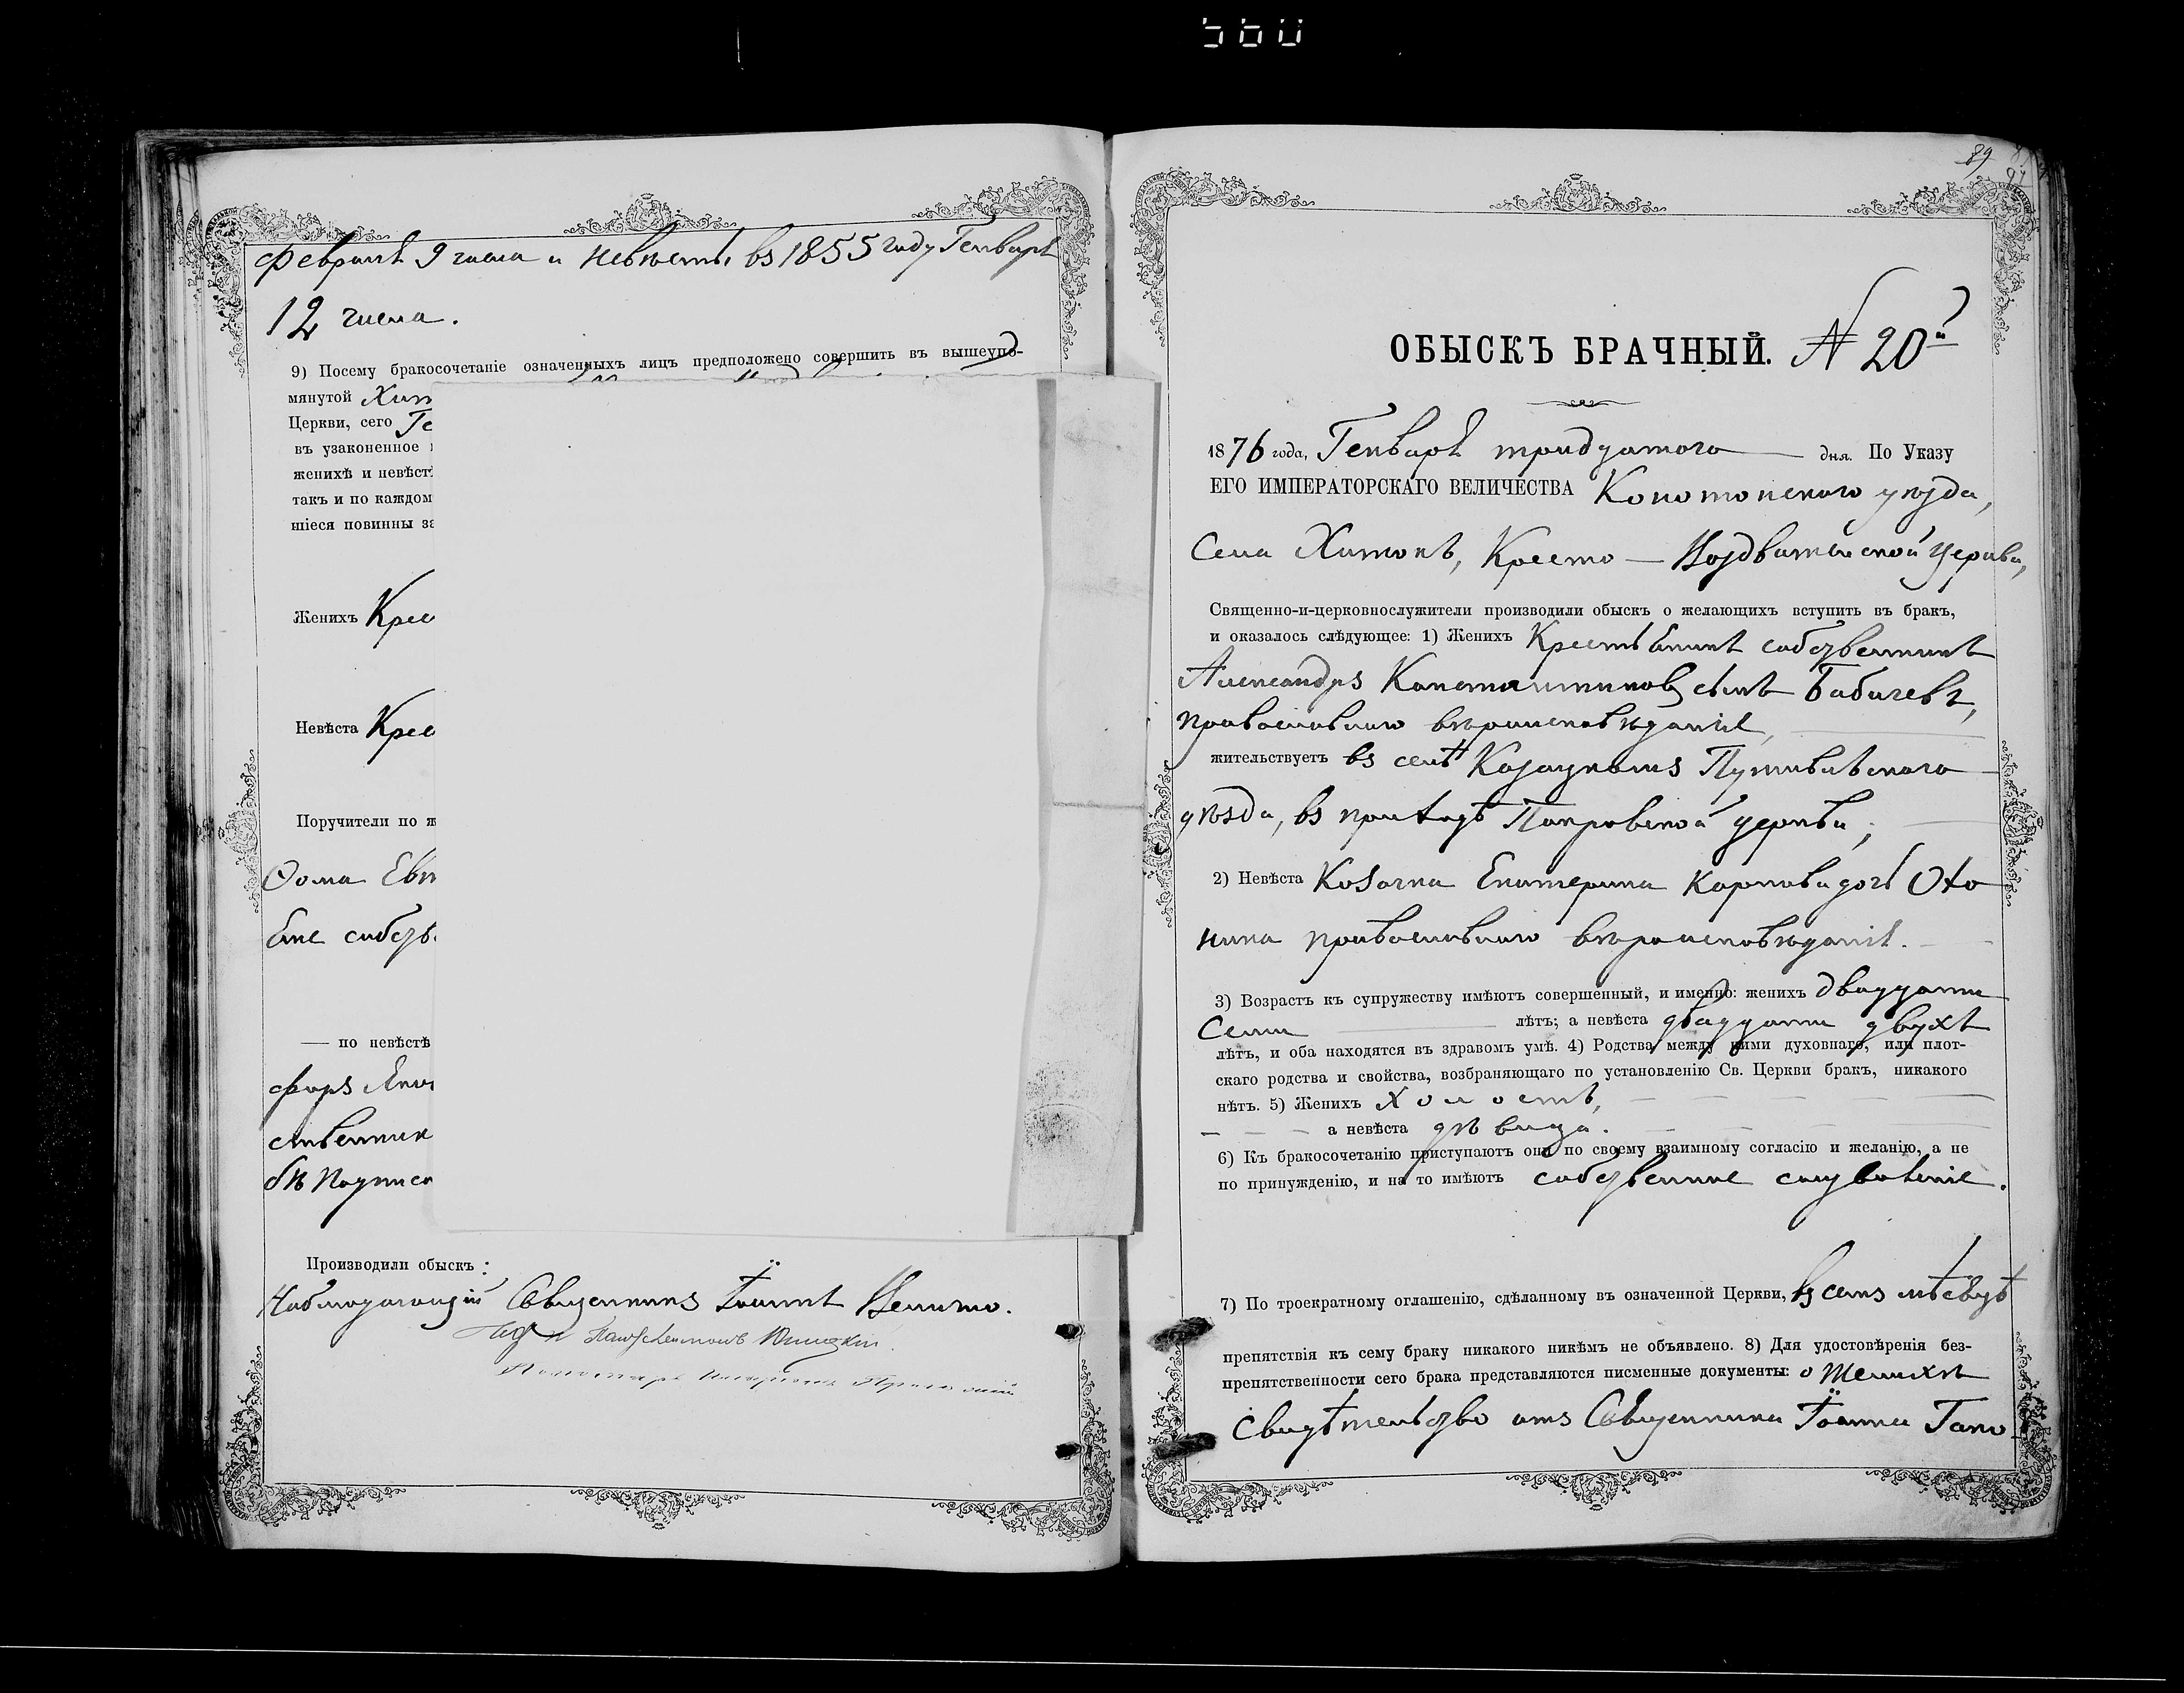 560
Февралѣ 9 числа и невѣсты въ 1855 году Генварѣ
12 числа.
9) Посему бракосочетаніе означенныхъ лицъ предположено совершить въ вышеупо-
мянутой
Церкви, сего
въ узаконенное
женихѣ и невѣст
такъ и по каждом
шіеся повинны за
Женихъ Крес
Невѣста Крес
Поручители по ж
Ѳома Евт
— по невѣстѣ
ственник
Производили обыскъ:
Наблюдающій Священникъ Іоаннъ
ОБЫСКЪ БРАЧНЫЙ. N 20й
89
1876 года, Генварѣ тридцатого дня. По Указу
ЕГО ИМПЕРАТОРСКАГО ВЕЛИЧЕСТВА Конотопского уѣзда,
Села Хижокъ, Кресто-Воздвиженской Церкви,
Священно-и-церковнослужители производили обыскъ о желающихъ вступить въ бракъ,
и оказалось слѣдующее: 1) Женихъ Крестьянинъ собственникъ
Александръ Константиновъ сынъ Бабичевъ,
православного вѣроисповѣданія,
жительствуетъ въ селѣ Казацкомъ Путивльского
уѣзда, въ приходѣ Покровской церкви;
2) Невѣста Козачка Екатерина Карпова дочь Охо
нина православного вѣроисповѣданія.
3) Возрастъ къ супружеству имѣютъ совершенный, и именно: женихъ двадцати
семи лѣтъ; а невѣста двадцати двухъ
лѣтъ, и оба находятся въ здравомъ умѣ. 4) Родства между ними духовнаго, или плот-
скаго родства и свойства, возбраняющаго по установленію Св. Церкви бракъ, никакого
нѣтъ. 5) Женихъ холостъ,
а невѣста дѣвица.
6) Къ бракосочетанію приступаютъ они по своему взаимному согласію и желанію, а не
по принужденію, и на то имѣютъ собственное соизволеніе.
7) По троекратному оглашенію, сдѣланному въ означенной Церкви, въ семъ мѣсяцѣ
препятствія къ сему браку никакого никѣмъ не объявлено. 8) Для удостовѣренія без-
препятственности сего брака представляются писменные документы: о женихѣ
Свидѣтельство отъ Священника Іоанна